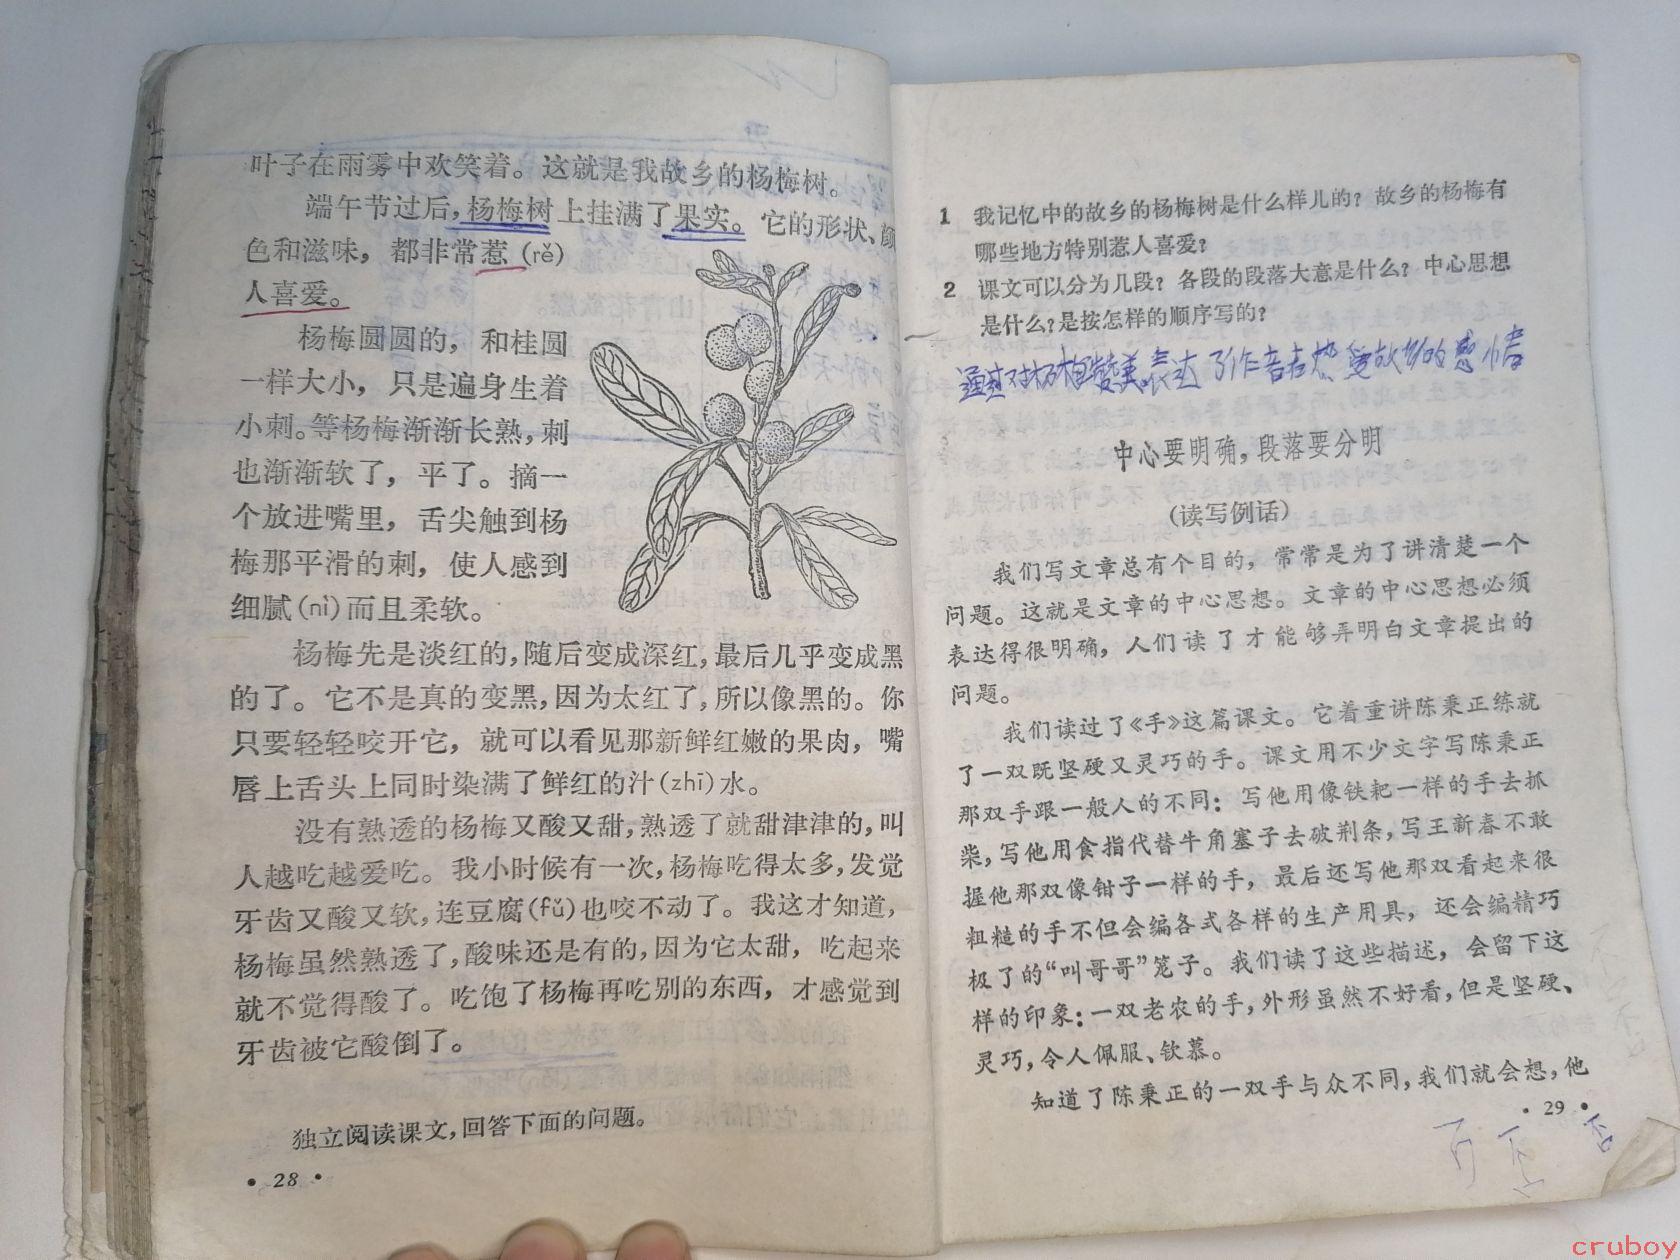 叶子在雨雾中欢笑着。这就是我故乡的杨梅树。
端午节过后，杨梅树上挂满了果实。它的形状、颜
色和滋味，都非常惹(rě)
人喜爱。
杨梅圆圆的，和桂圆
一样大小，只是遍身生着
小刺。等杨梅渐渐长熟，刺
也渐渐软了，平了。摘一
个放进嘴里，舌尖触到杨
梅那平滑的刺，使人感到
细腻(nì)而且柔软。
杨梅先是淡红的，随后变成深红，最后几乎变成黑
的了。它不是真的变黑，因为太红了，所以像黑的。你
只要轻轻咬开它，就可以看见那新鲜红嫩的果肉，嘴
唇上舌头上同时染满了鲜红的汁(zhī)水。
没有熟透的杨梅又酸又甜，熟透了就甜津津的，叫
人越吃越爱吃。我小时候有一次，杨梅吃得太多，发觉
牙齿又酸又软，连豆腐(fǔ)也咬不动了。我这才知道，
杨梅虽然熟透了，酸味还是有的，因为它太甜，吃起来
就不觉得酸了。吃饱了杨梅再吃别的东西，才感觉到
牙齿被它酸倒了。
独立阅读课文，回答下面的问题。
• 28 •
1 我记忆中的故乡的杨梅树是什么样儿的？故乡的杨梅有
哪些地方特别惹人喜爱？
2 课文可以分为几段？各段的段落大意是什么？中心思想
是什么？是按怎样的顺序写的？
通过对杨梅赞美表达了作者热爱故乡的感情
中心要明确，段落要分明
(读写例话)
我们写文章总有个目的，常常是为了讲清楚一个
问题。这就是文章的中心思想。文章的中心思想必须
表达得很明确，人们读了才能够弄明白文章提出的
问题。
我们读过了《手》这篇课文。它着重讲陈秉正练就
了一双既坚硬又灵巧的手。课文用不少文字写陈秉正
那双手跟一般人的不同：写他用像铁耙一样的手去抓
柴，写他用食指代替牛角塞子去破荆条，写王新春不敢
握他那双像钳子一样的手，最后还写他那双看起来很
粗糙的手不但会编各式各样的生产用具，还会编精巧
极了的“叫哥哥”笼子。我们读了这些描述，会留下这
样的印象：一双老农的手，外形虽然不好看，但是坚硬、
灵巧，令人佩服、钦慕。
知道了陈秉正的一双手与众不同，我们就会想，他
• 29 •
cruboy